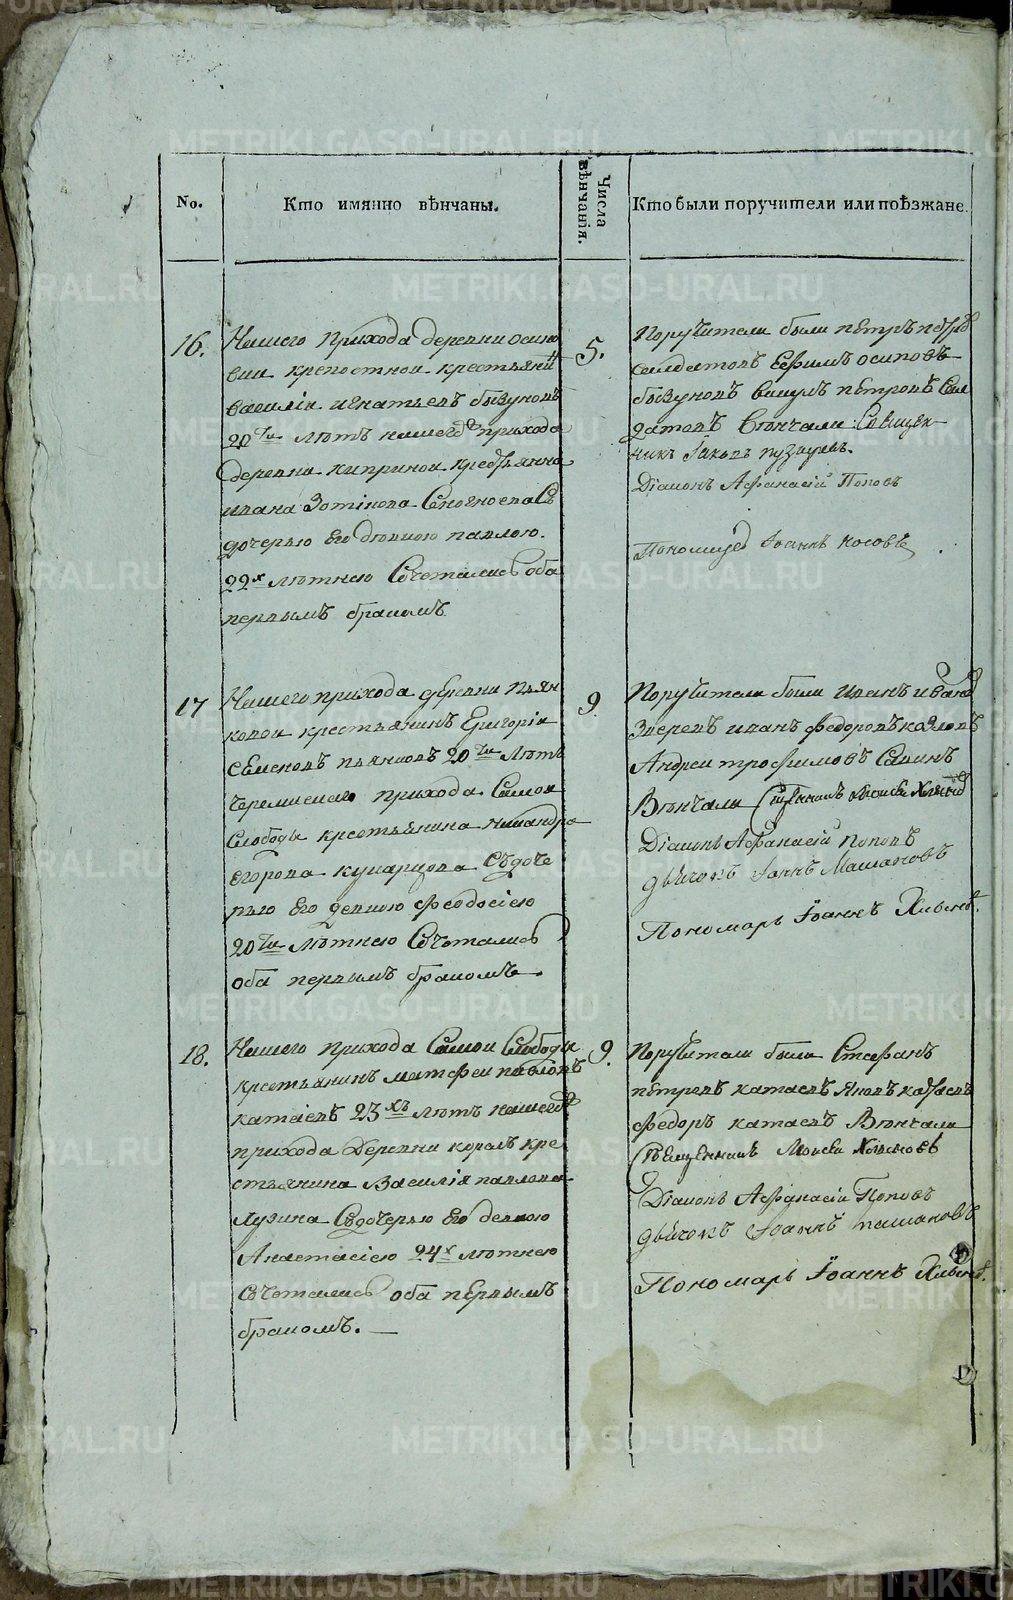 No.
Кто имянно вѣнчаны.
Числа вѣнчанія.
Кто были поручители или поѣзжане.
16.
Нашего прихода деревни осино
вки крепостнои крестьянин
василіи игнатьевъ бызуновъ
20ти лѣтъ нашего прихода
деревни киприной крестьянина
ивана Зотікова Съ
дочерью Его дѣвкою павлою.
22х лѣтнею Сочетались оба
первымъ бракомъ
5.
Поручители были пётръ
салдатовъ Ефимъ осиповъ
бызуновъ викулъ пётровъ Сал
датовъ Вѣнчали Священ
никъ Іаковъ
Діаконъ Афанасій Поповъ
Пономарь Іоаннъ носовъ
17
Нашего прихода деревни Пьян
ковои крестьянинъ Григоріи
Семеновъ пьянковъ 20ти лѣтъ
Черемискаго прихода Самои
Слободы крестьянина никандра
егорова кукарцова Съ доче
рью Его девкою Феодосіею
20ти лѣтнею Сочетались
оба первымъ бракомъ.
9.
Поручители были Иванъ ивановъ
Зверевъ иванъ федоровъ козловъ
Андреи трофимовъ Савинъ
Вѣнчали Священникъ Моисеи Хлыновъ
Діаконъ Афанасій поповъ
дьячокъ Іоаннъ
Пономарь Іоаннъ Хлыновъ.
18.
Нашего прихода Самои Слободы
крестьянинъ матфеи павловъ
катаевъ 23хъ лѣтъ нашегожъ
прихода Деревни кре
стьянина Василія павлова
Лузина Съ дочерью Его девкою
Анастасіею 24х лѣтнею
Сочетались оба первымъ
бракомъ.
9.
Поручители были Стефанъ
пётровъ катаевъ Яковъ катаевъ
Федоръ катаевъ Вѣнчали
Священникъ Моисеи Хлыновъ
Діаконъ Афанасіи Поповъ
дьячокъ Іоаннъ
Пономарь Іоаннъ Хлыновъ.
METRIKI.GASO-URAL.RU